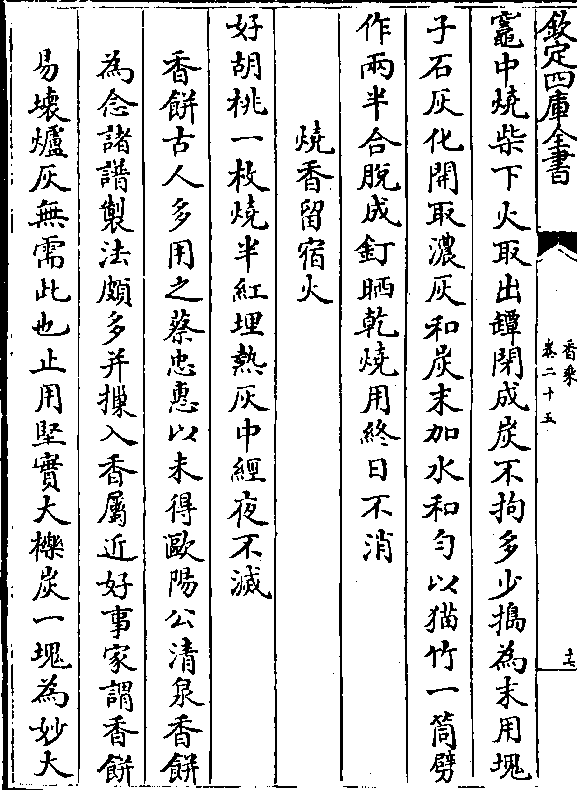 欽定四庫全書
香乘
卷二十五
竈中燒柴下火取出罈閉成炭不拘多少搗為末用塊
子石灰化開取濃灰和炭末加水和勻以猫竹一筒劈
作兩半合脫成釘晒乾燒用終日不消
燒香留宿火
好胡桃一枚燒半紅埋熱灰中經夜不滅
香餅古人多用之蔡忠惠以未得歐陽公清泉香餅
為念諸譜製法頗多并摷入香屬近好事家謂香餅
易壞爐灰無需此也止用堅實大櫟炭一塊為妙大